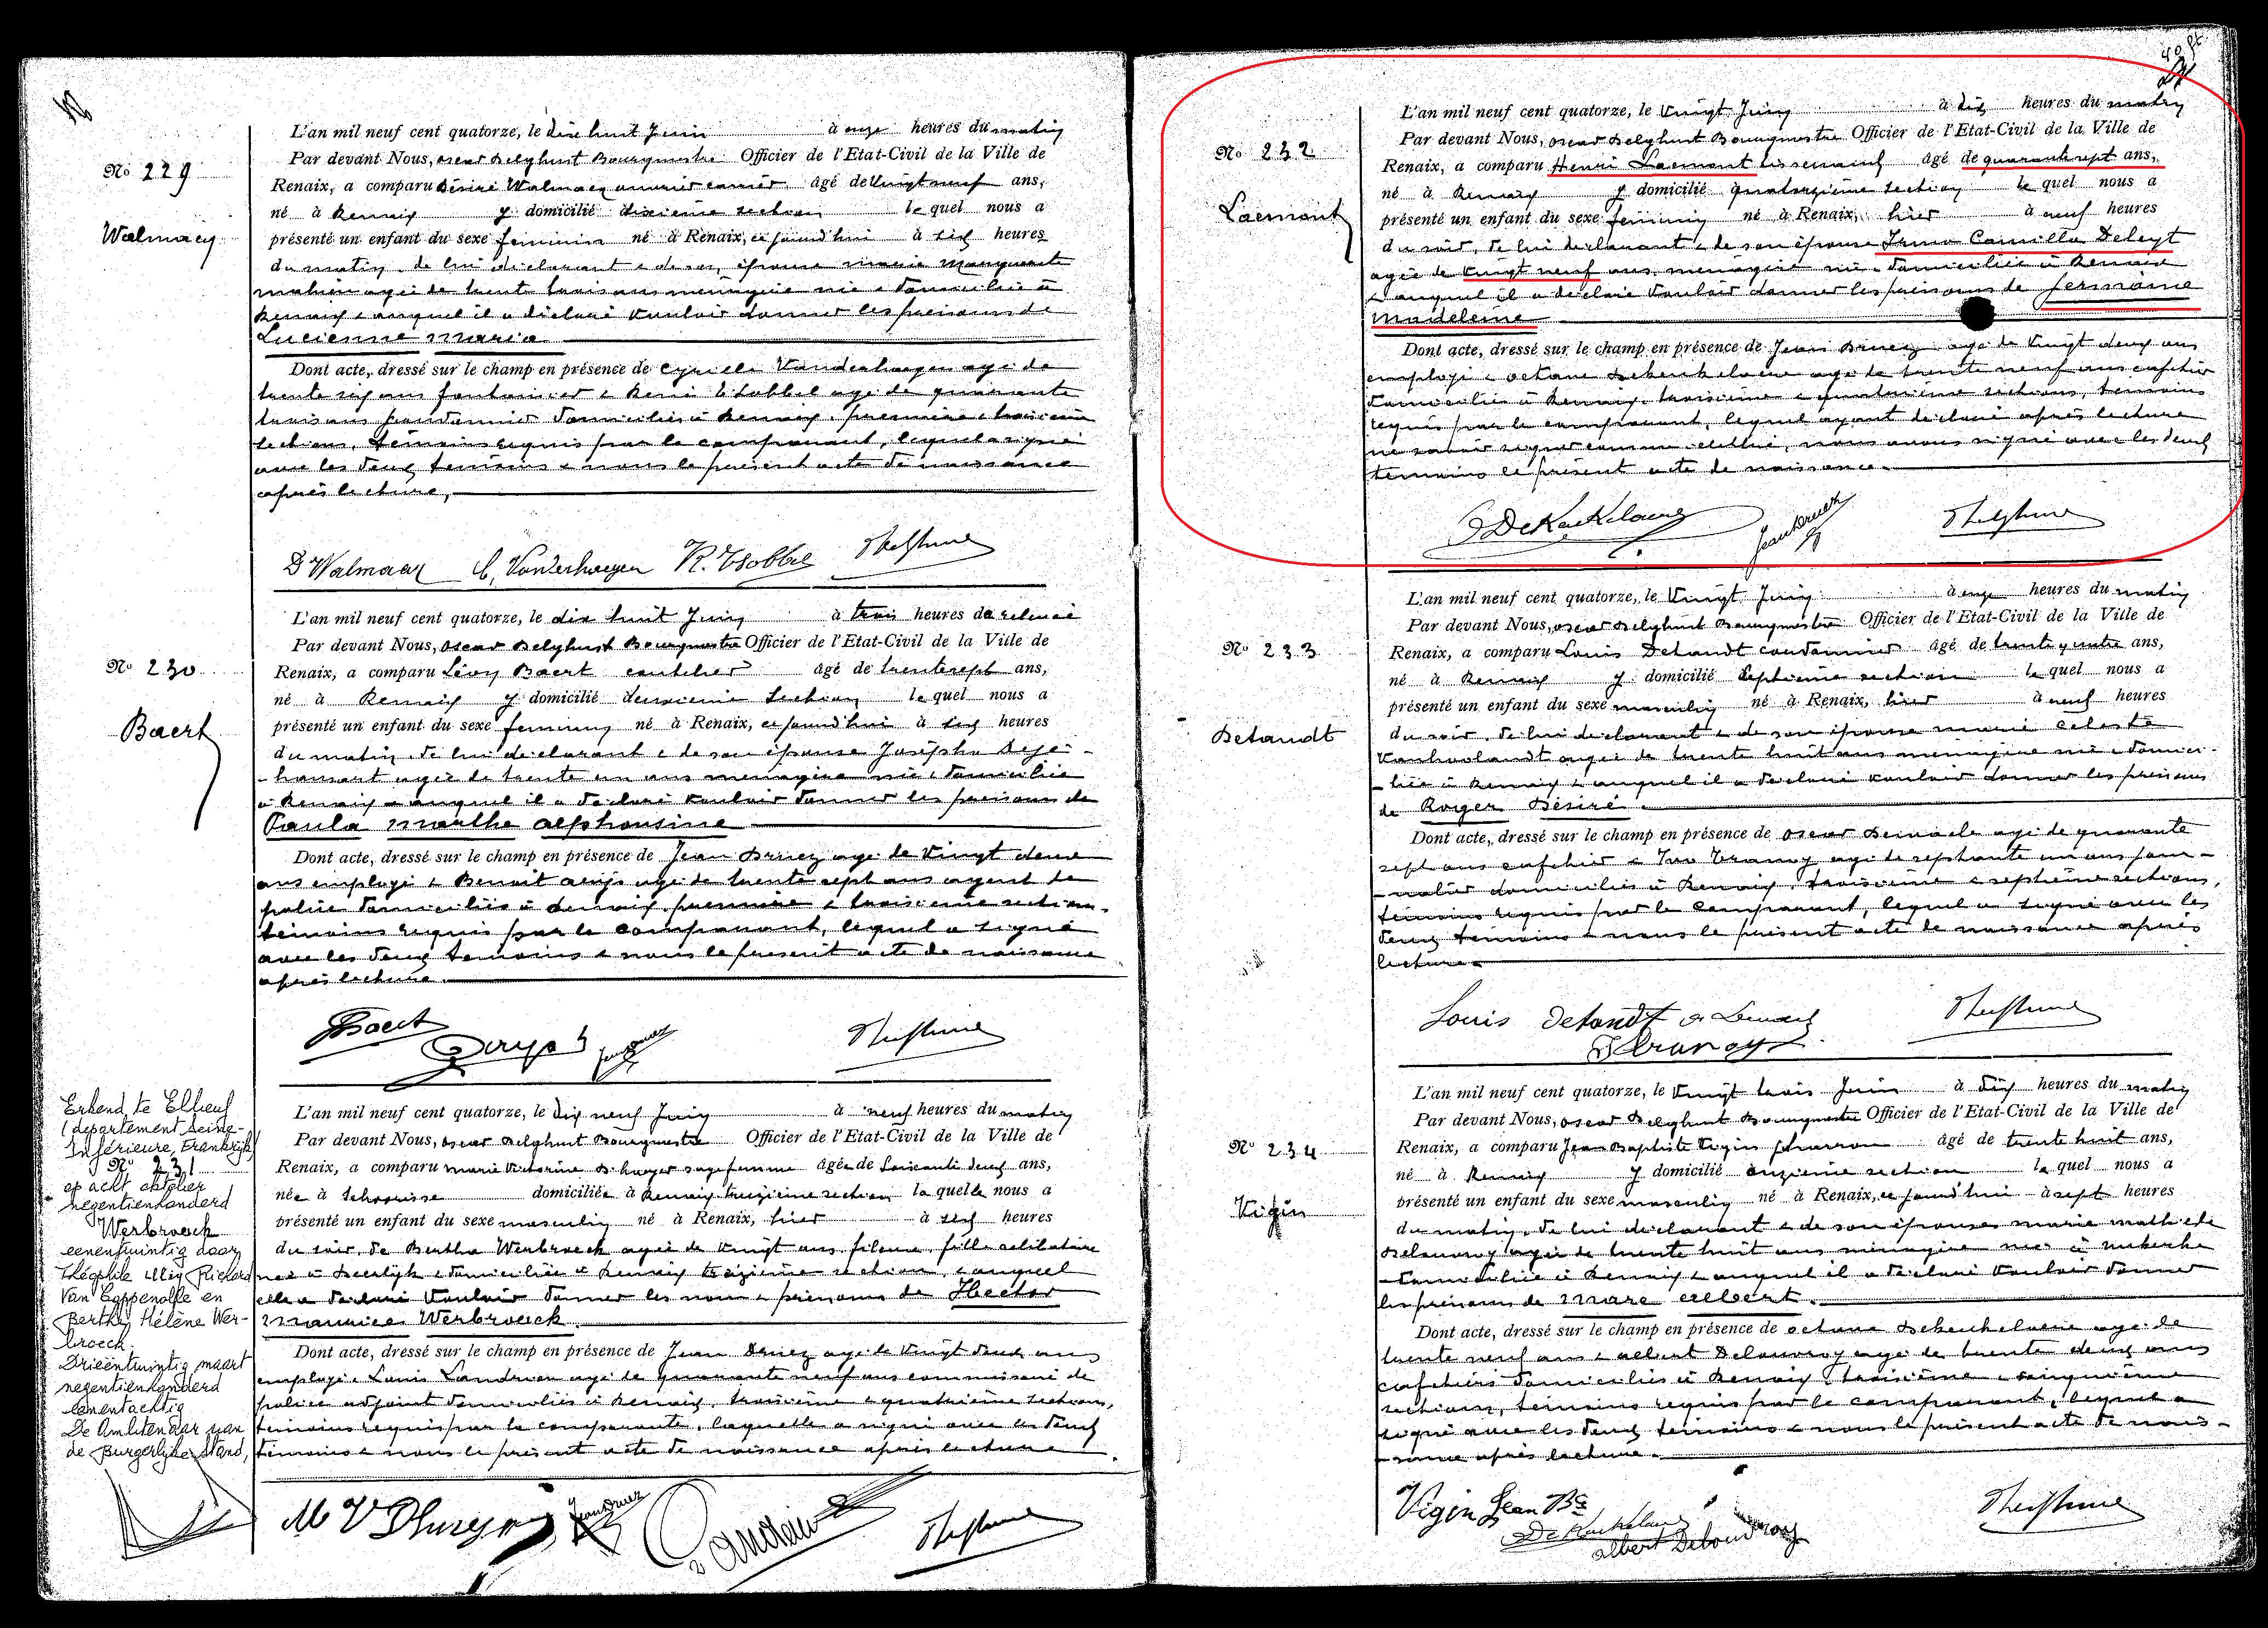 L'an mil neuf cent quatorze, le dix huit Juin à onze heures du matin
Nº 229
Par devant Nous, Oscar Delghust Bourgmestre Officier de l'Etat-Civil de la Ville de
Renaix, a comparu Désiré Walmacq ouvrier âgé de vingt neuf ans,
né à Renaix y domicilié dixième section lequel nous a
Walmacq
présenté un enfant du sexe feminin né à Renaix, ce jourd'hui à six heures
du matin, de lui déclarant & de son épouse Marie Marguerite
Mahieu agée de trente trois ans ménagère née & domiciliée à
Renaix & auquel il a déclaré vouloir donner les prénoms de
Lucienne Maria
Dont acte, dressé sur le champ en présence de Cyrille Vanderhaegen agé de
trente six ans fontainier & René t'Sobbel agé de quarante
trois ans domiciliés à Renaix, première & troisième
sections, témoins requis par le comparant, lequel a signé
avec les deux témoins & nous le présent acte de naissance
après lecture,
D Walmacq C. Vanderhaegen R. Tsobbel
L'an mil neuf cent quatorze, le dix huit Juin à trois heures de relevée
Par devant Nous, Oscar Delghust Bourgmestre Officier de l'Etat-Civil de la Ville de
Nº 230
Renaix, a comparu Léon Baert âgé de trente sept ans,
né à Renaix y domicilié deuxième section lequel nous a
Baert
présenté un enfant du sexe feminin né à Renaix, ce jourd'hui à six heures
du matin, de lui déclarant & de son épouse Josépha
agée de trente un ans ménagère née & domiciliée
à Renaix & auquel il a déclaré vouloir donner les prénoms de
Paula Marthe Alphonsine
Dont acte, dressé sur le champ en présence de Jean Druez agé de vingt deux
ans employé & Benoit agé de trente sept ans agent de
police domiciliés à Renaix, première & troisième sections,
témoins requis par le comparant, lequel a signé
avec les deux témoins & nous le présent acte de naissance
après lecture.
Baert
L'an mil neuf cent quatorze, le dix neuf Juin à neuf heures du matin
Par devant Nous, Oscar Delghust Bourgmestre Officier de l'Etat-Civil de la Ville de
Renaix, a comparu Marie Victorine D'huyer sage femme âgée de soixante deux ans,
née à Schoorisse domiciliée à Renaix treizième section laquelle nous a
présenté un enfant du sexe masculin né à Renaix, hier à six heures
du soir, de Bertha Werbroeck agée de vingt ans fileuse, fille célibataire
née à Deerlijk & domiciliée à Renaix treizième section, & auquel
elle a déclaré vouloir donner les nom & prénoms de Hector
Maurice Werbroeck.
Dont acte, dressé sur le champ en présence de Jean Druez agé de vingt deux ans
employé & Louis Landrieu agé de quarante neuf ans commissaire de
police adjoint domiciliés à Renaix, troisième & quatrième sections,
témoins requis par la comparante, laquelle a signé avec les deux
témoins & nous le présent acte de naissance après lecture.
Erkend te Elbeuf
(departement Seine-
Inférieure, Frankrijk)
Nº 231
op acht oktober
negentienhonderd
Werbroeck
eenentwintig door
Théophile Richard
Van Coppenolle en
Berthe Hélène Wer-
broeck.
Drieëntwintig maart
negentienhonderd
eenentachtig
De Ambtenaar van
de Burgerlijke Stand,
L'an mil neuf cent quatorze, le vingt Juin à dix heures du matin
Par devant Nous, Oscar Delghust Bourgmestre Officier de l'Etat-Civil de la Ville de
Nº 232
Renaix, a comparu Henri Laemont tisserand âgé de quarante sept ans,
né à Renaix y domicilié quatorzième section lequel nous a
Laemont
présenté un enfant du sexe feminin né à Renaix, hier à neuf heures
du soir, de lui déclarant & de son épouse Irma Camilla Deleyt
agée de vingt neuf ans, ménagère née & domiciliée à Renaix
& auquel il a déclaré vouloir donner les prénoms de Germaine
Madeleine
Dont acte, dressé sur le champ en présence de Jean Druez agé de vingt deux ans
employé & Octave Dekeukelaere agé de trente neuf ans cafetier
domiciliés à Renaix, troisième & quatorzième sections, témoins
requis par le comparant, lequel ayant déclaré après lecture
ne savoir signer comme illettré, nous avons signé avec les deux
témoins le présent acte de naissance.
L'an mil neuf cent quatorze, le vingt Juin à onze heures du matin
Par devant Nous, Oscar Delghust Bourgmestre Officier de l'Etat-Civil de la Ville de
Nº 233
Renaix, a comparu Louis Detandt cordonnier âgé de trente quatre ans,
né à Renaix y domicilié septième section lequel nous a
présenté un enfant du sexe masculin né à Renaix, hier à neuf heures
Detandt
du soir, de lui déclarant & de son épouse Marie Celeste
agée de trente huit ans ménagère née & domici-
-liée à Renaix & auquel il a déclaré vouloir donner les prénoms
de Roger Désiré.
Dont acte, dressé sur le champ en présence de Oscar agé de quarante
sept ans cafetier & Ivo agé de septante un ans jour-
-nalier domiciliés à Renaix, troisième & septième sections,
témoins requis par le comparant, lequel a signé avec les
deux témoins & nous le présent acte de naissance après
lecture
Louis Detandt
L'an mil neuf cent quatorze, le vingt trois Juin à dix heures du matin
Par devant Nous, Oscar Delghust Bourgmestre Officier de l'Etat-Civil de la Ville de
Nº 234
Renaix, a comparu Jean Baptiste Vigin âgé de trente huit ans,
né à Renaix y domicilié onzième section lequel nous a
Vigin
présenté un enfant du sexe masculin né à Renaix, ce jourd'hui à sept heures
du matin, de lui déclarant & de son épouse Marie Mathilde
Delouvroy agée de trente huit ans ménagère née à Nukerke
domiciliée à Renaix & auquel il a déclaré vouloir donner
les prénoms de Marc Albert.
Dont acte, dressé sur le champ en présence de Octave Dekeukelaere agé de
trente neuf ans & Albert Delouvroy agé de trente deux ans
cafetiers domiciliés à Renaix, troisième & cinquième
sections, témoins requis par le comparant, lequel a
signé avec les deux témoins & nous le présent acte de nais-
-sance après lecture.
Vigin Jean Bte
Albert Delouvroy